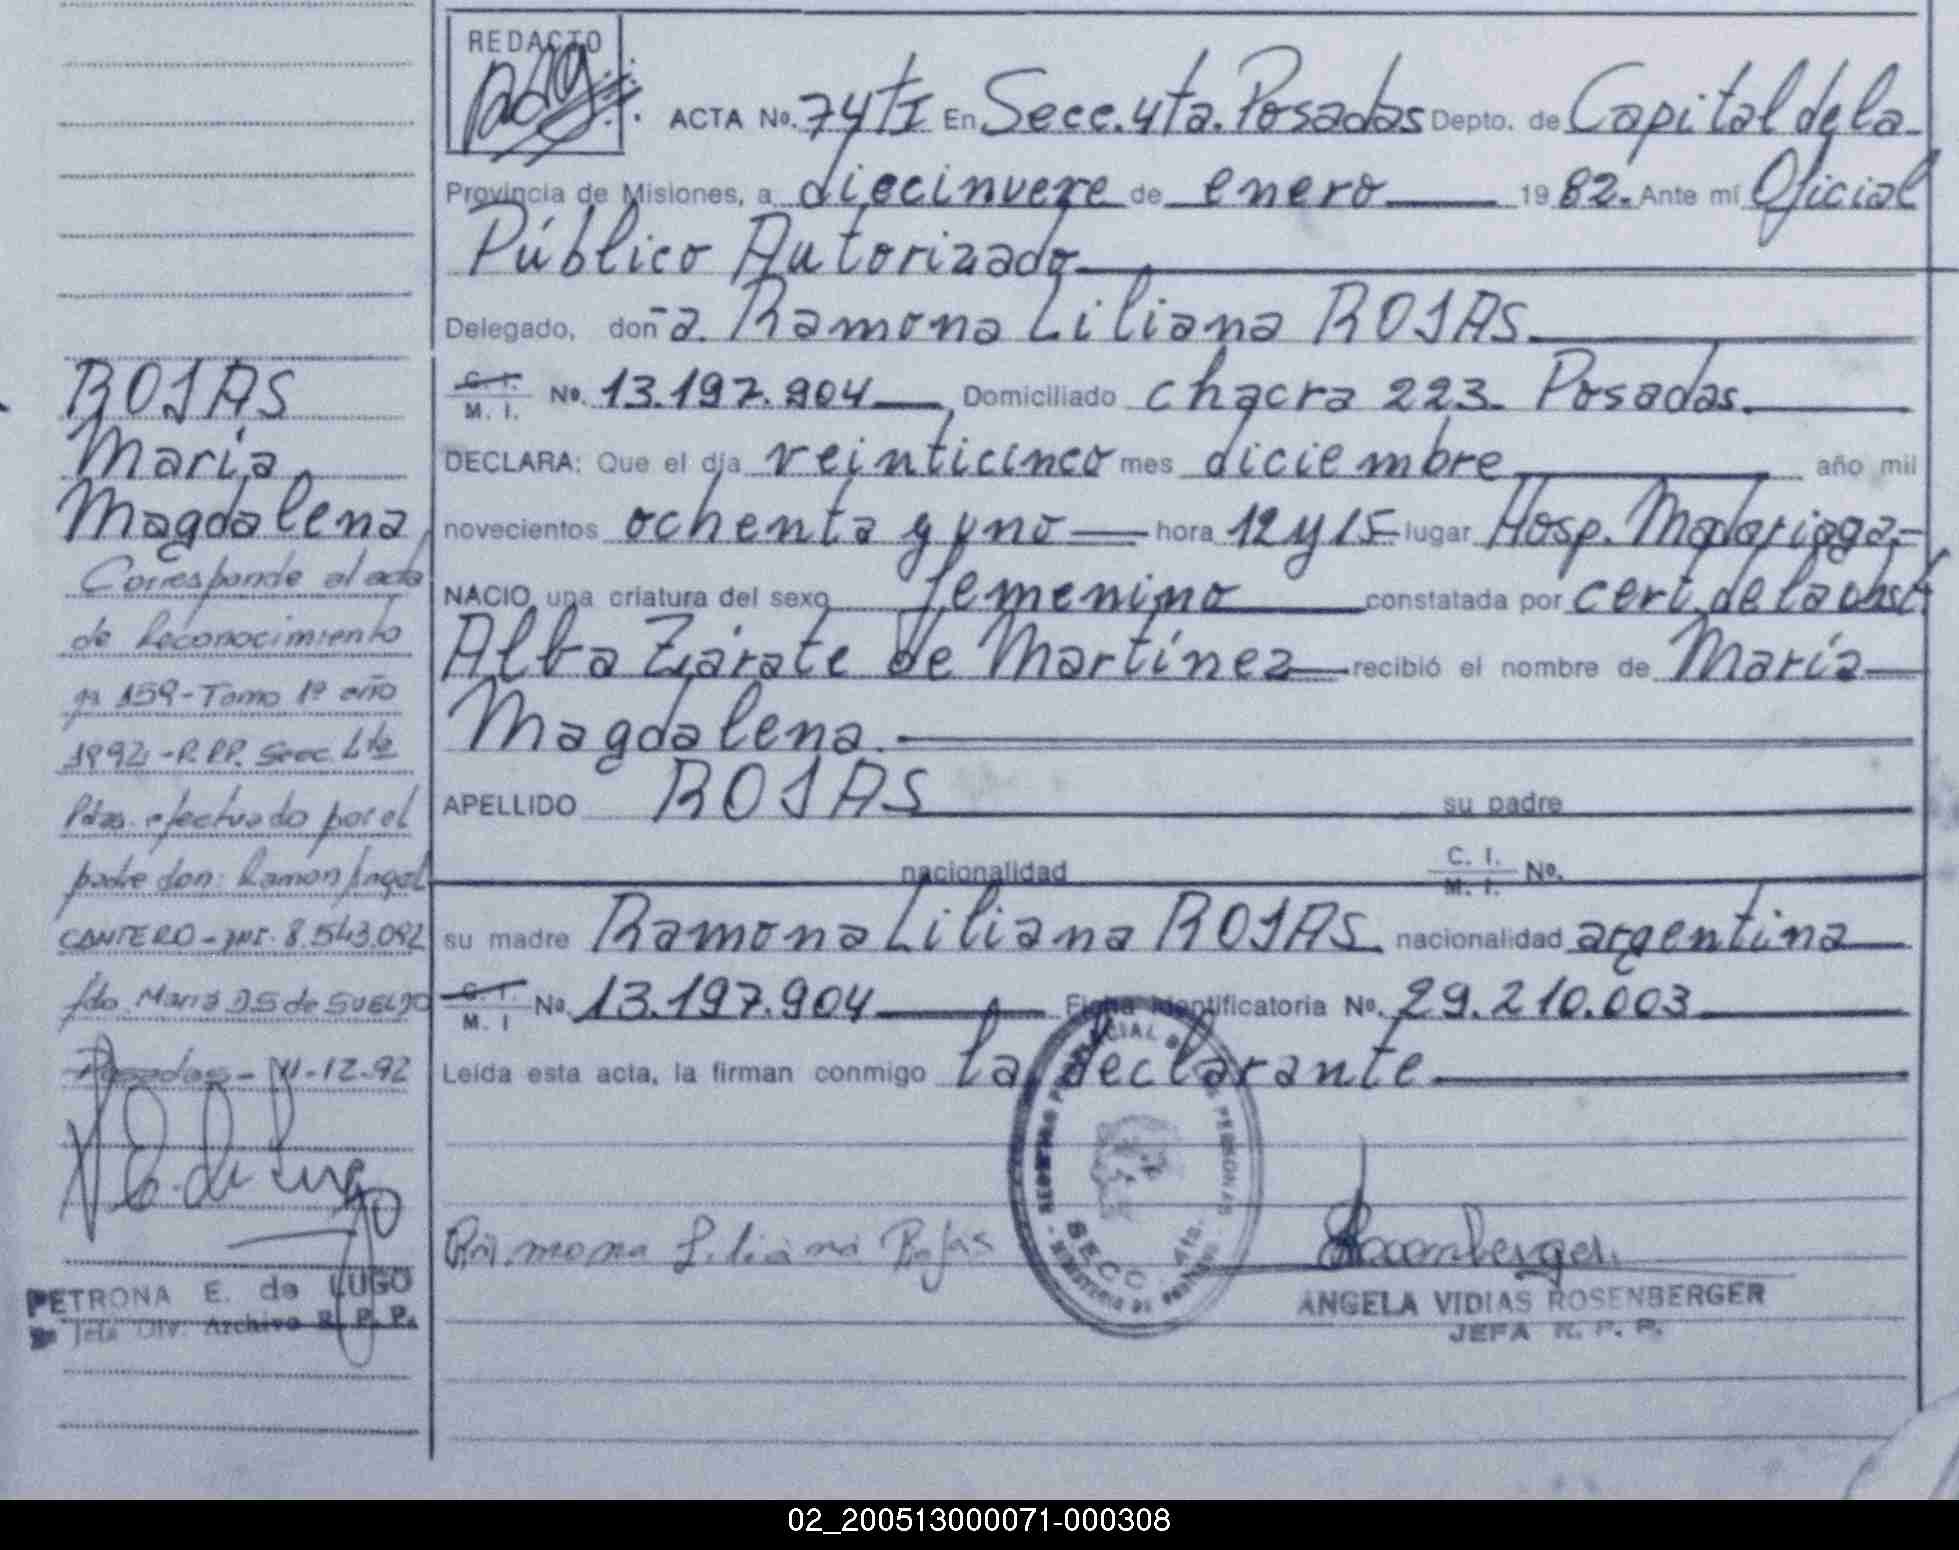 REDACTO
ACTA No. 74 tI En Secc. 4ta. Posadas Depto. de Capital de la
Provincia de Misiones, a diecinueve de enero 1982. Ante mí Oficial
Público Autorizado
Delegado, doña. Ramona Liliana ROJAS
C. I. M. I. No. 13.197.904, Domiciliado chacra 223. Posadas.
DECLARA: Que el día veinticinco mes diciembre año mil
novecientos ochenta y uno hora 12 y 15 lugar Hosp. Madariaga.
NACIO una criatura del sexo femenino constatada por cert. de la obst.
Alba Zárate de Martínez recibió el nombre de María
Magdalena.
APELLIDO ROJAS su padre
nacionalidad C. I. M. I. No.
su madre Ramona Liliana ROJAS nacionalidad argentina
C. I. M. I No. 13.197.904 Ficha Identificatoria No. 29.210.003
Leída esta acta, la firman conmigo la declarante
Ramona Liliana Rojas
SECC. 4ta.
ANGELA VIDIAS ROSENBERGER
JEFA R. P. P.
ROJAS
María
Magdalena
Corresponde al acta
de Reconocimiento
nº 159-Tomo 1º año
1992-R.P.P. Secc. 4ta
Pdas. efectuado por el
padre don: Ramon Angel
CANTERO- 8.543.092
fdo. María D.S de SUELDO
Posadas- 11-12-92
PETRONA E. de LUGO
Jefa Div. Archivo R. P. P.
02_200513000071-000308